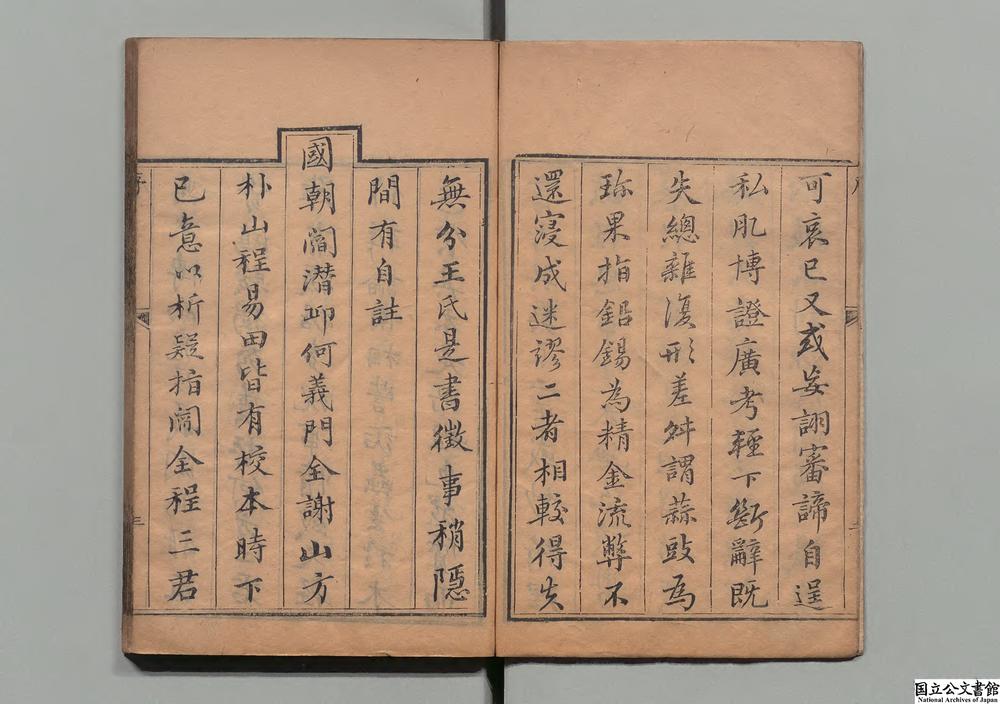 可哀已又或妄詡審諦自逞
私肊博證廣考輕下斷辭既
失總雜復形差舛謂蒜䜴為
珎果指鋁錫為精金流弊不
還寖成迷謬二者相較得失
無分王氏是書徵事稍隱
間有自註
國朝閻潜邱何義門全謝山方
朴山程易田皆有校本時下
已意以析疑指閻全程三君
序
三
国立公文書館
National Archives of Japan